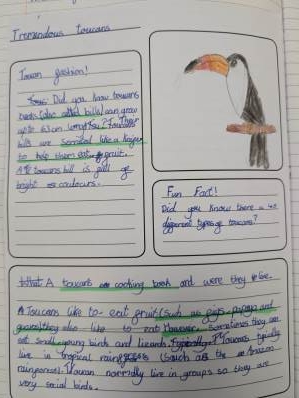 Tremendous toucans
Toucan fashion!
Did you know toucans
beaks (also called bills) can grow
up to
bills are serrated like a knife
to help them eat fruit.
A toucans bill is full of
bright colours.
Fun Fact!
Did you know there
different types of toucans?
What A toucans cooking book and were they live.
Toucans like to eat fruit (such as figs, papaya and
they also like to eat However, sometimes they can
eat small young birds and lizards. Toucans typically
live in tropical (such as the Amazon
rainforest). Toucan normally live in groups so they are
very social birds.